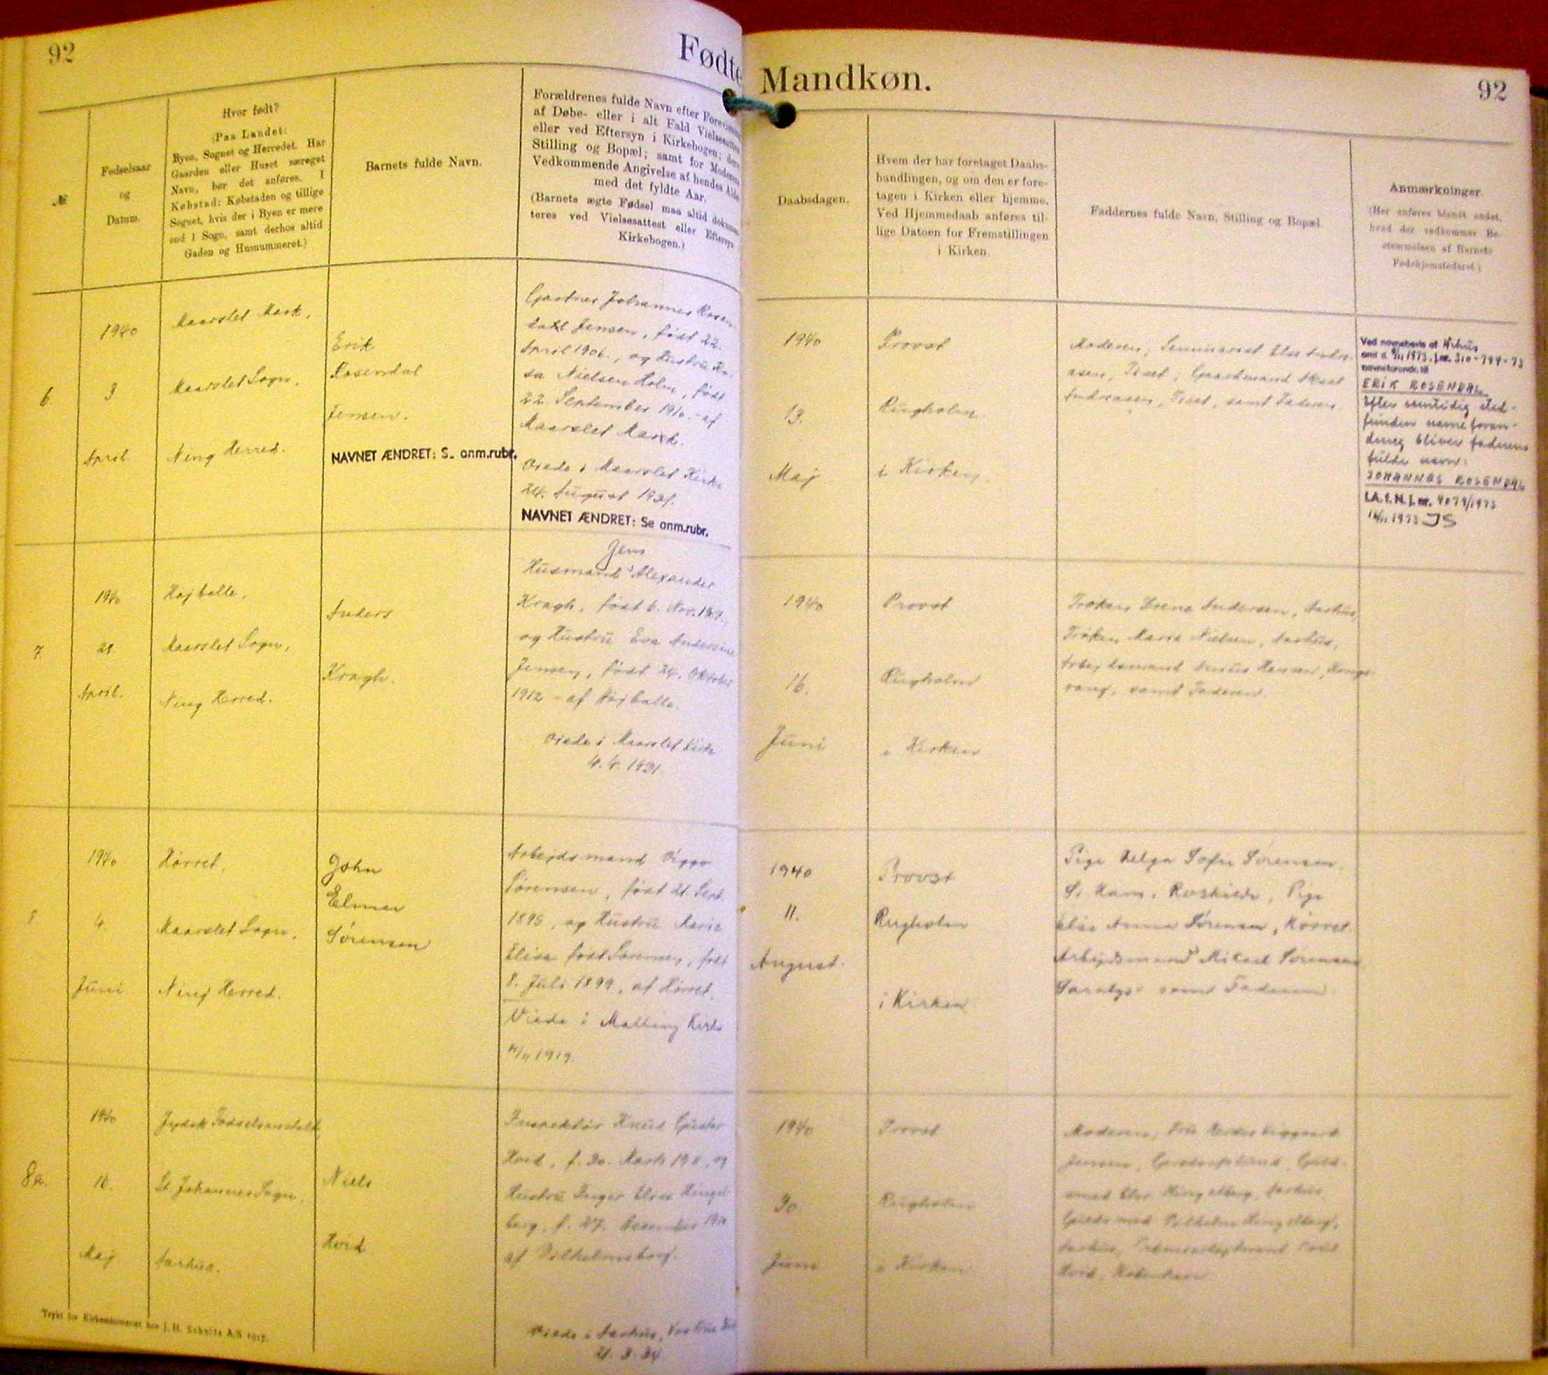 92
Fødte
Mandkøn.
92
№
Fødselsaar
og
Datum.
Hvor født?
(Paa Landet:
Byen, Sognet og Herredet. Har
Gaarden eller Huset særeget
Navn, bør det anføres. I
Købstad: Købstaden og tillige
Sognet, hvis der i Byen er mere
end 1 Sogn, samt derhos altid
Gaden og Husnummeret.)
Barnets fulde Navn.
Forældrenes fulde Navn efter
af Døbe- eller i alt Fald
eller ved Eftersyn i Kirkebogen;
Stilling og Bopæl; samt for Moderens
Vedkommende Angivelse af hendes Alder
med det fyldte Aar.
(Barnets ægte Fødsel maa altid
teres ved Vielsesattest eller Eftersyn
Kirkebogen.)
Daabsdagen.
Hvem der har foretaget Daabs-
handlingen, og om den er fore-
tagen i Kirken eller hjemme.
Ved Hjemmedaab anføres til-
lige Datoen for Fremstillingen
i Kirken.
Faddernes fulde Navn, Stilling og Bopæl.
Anmærkninger.
(Her anføres blandt andet,
hvad der vedkommer Be-
stemmelsen af Barnets
Fødehjemstedsret.)
6.
1940
3
April.
Maarslet Mark,
Maarslet Sogn,
Ning Herred.
Erik
Rosendal
Jensen.
NAVNET ÆNDRET: S. anm.rubr.
Gartner Johannes Rosen-
dahl Jensen, født 22.
April 1906, og Hustru
Nielsen Holm, født
22. September 1910 - af
Maarslet Mark.
Viede i Maarslet Kirke
24. August
NAVNET ÆNDRET: Se anm.rubr.
1940
13.
Maj
Provst
Rugholm
i Kirken.
Moderen, Seminarist Else
Tiset; Gaardmand
Andreasen, Tiset, samt Faderen.
Ved navnebevis af Århus
310-744-73
ERIK ROSENDAL
Efter samtidig sted-
funden navneforan-
dring bliver faderens
fulde navn:
JOHANNES ROSENDAL
4079/1973
JS
7.
1940
21.
April.
Højballe,
Maarslet Sogn,
Ning Herred.
Anders
Kragh.
Jens
Husmand Alexander
Kragh, født 6. Nov.
og Hustru Eva Andersine
Jensen, født 24. Oktober
1912 - af Højballe.
Viede i Maarslet Kirke
1931.
1940
16.
Juni
Provst
Rugholm
i Kirken
Frøken Irene Andersen, Aarhus,
Frøken Marie Nielsen, Aarhus,
Arbejdsmand Hansen,
samt Faderen.
8
1940
4.
Juni
Hørret,
Maarslet Sogn,
Ning Herred.
John
Elmer
Sørensen
Arbejdsmand Viggo
Sørensen, født 21. Sept.
1895, og Hustru Marie
Elise født Sørensen, født
8. Juli 1899, af Hørret.
Viede i Malling Kirke
1919.
1940
11.
August.
Provst
Rugholm
i Kirken
Pige Helga Sofie Sørensen,
Roskilde, Pige
Anna Sørensen, Hørret
Arbejdsmand Mikael Sørensen
samt Faderen.
8a.
1940
10.
Maj
Jydsk Fødselsanstalt,
St. Johannes Sogn,
Aarhus.
Niels
Hvid
Inspektør Knud Gustav
Hvid, f. 30. Marts, og
Hustru Inger Elise Hingel-
berg, f. 27. December
af Vilhelmsborg.
Viede i Aarhus, Vor Frue
21.3.34
1940
30.
Juni
Provst
Rugholm
i Kirken
Moderen, Fru
Jensen, Guld-
smed Hingelberg, Aarhus,
Guldsmed Vilhelm Hingelberg,
Aarhus,
Hvid, København
Trykt for Kirkeministeriet hos J. H. Schultz A/S 1937.